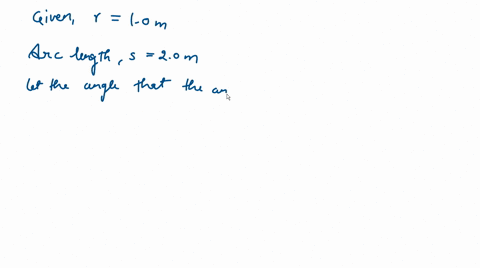 Given, r = 1.0 m
Arc length, s = 2.0 m
let the angle that the an